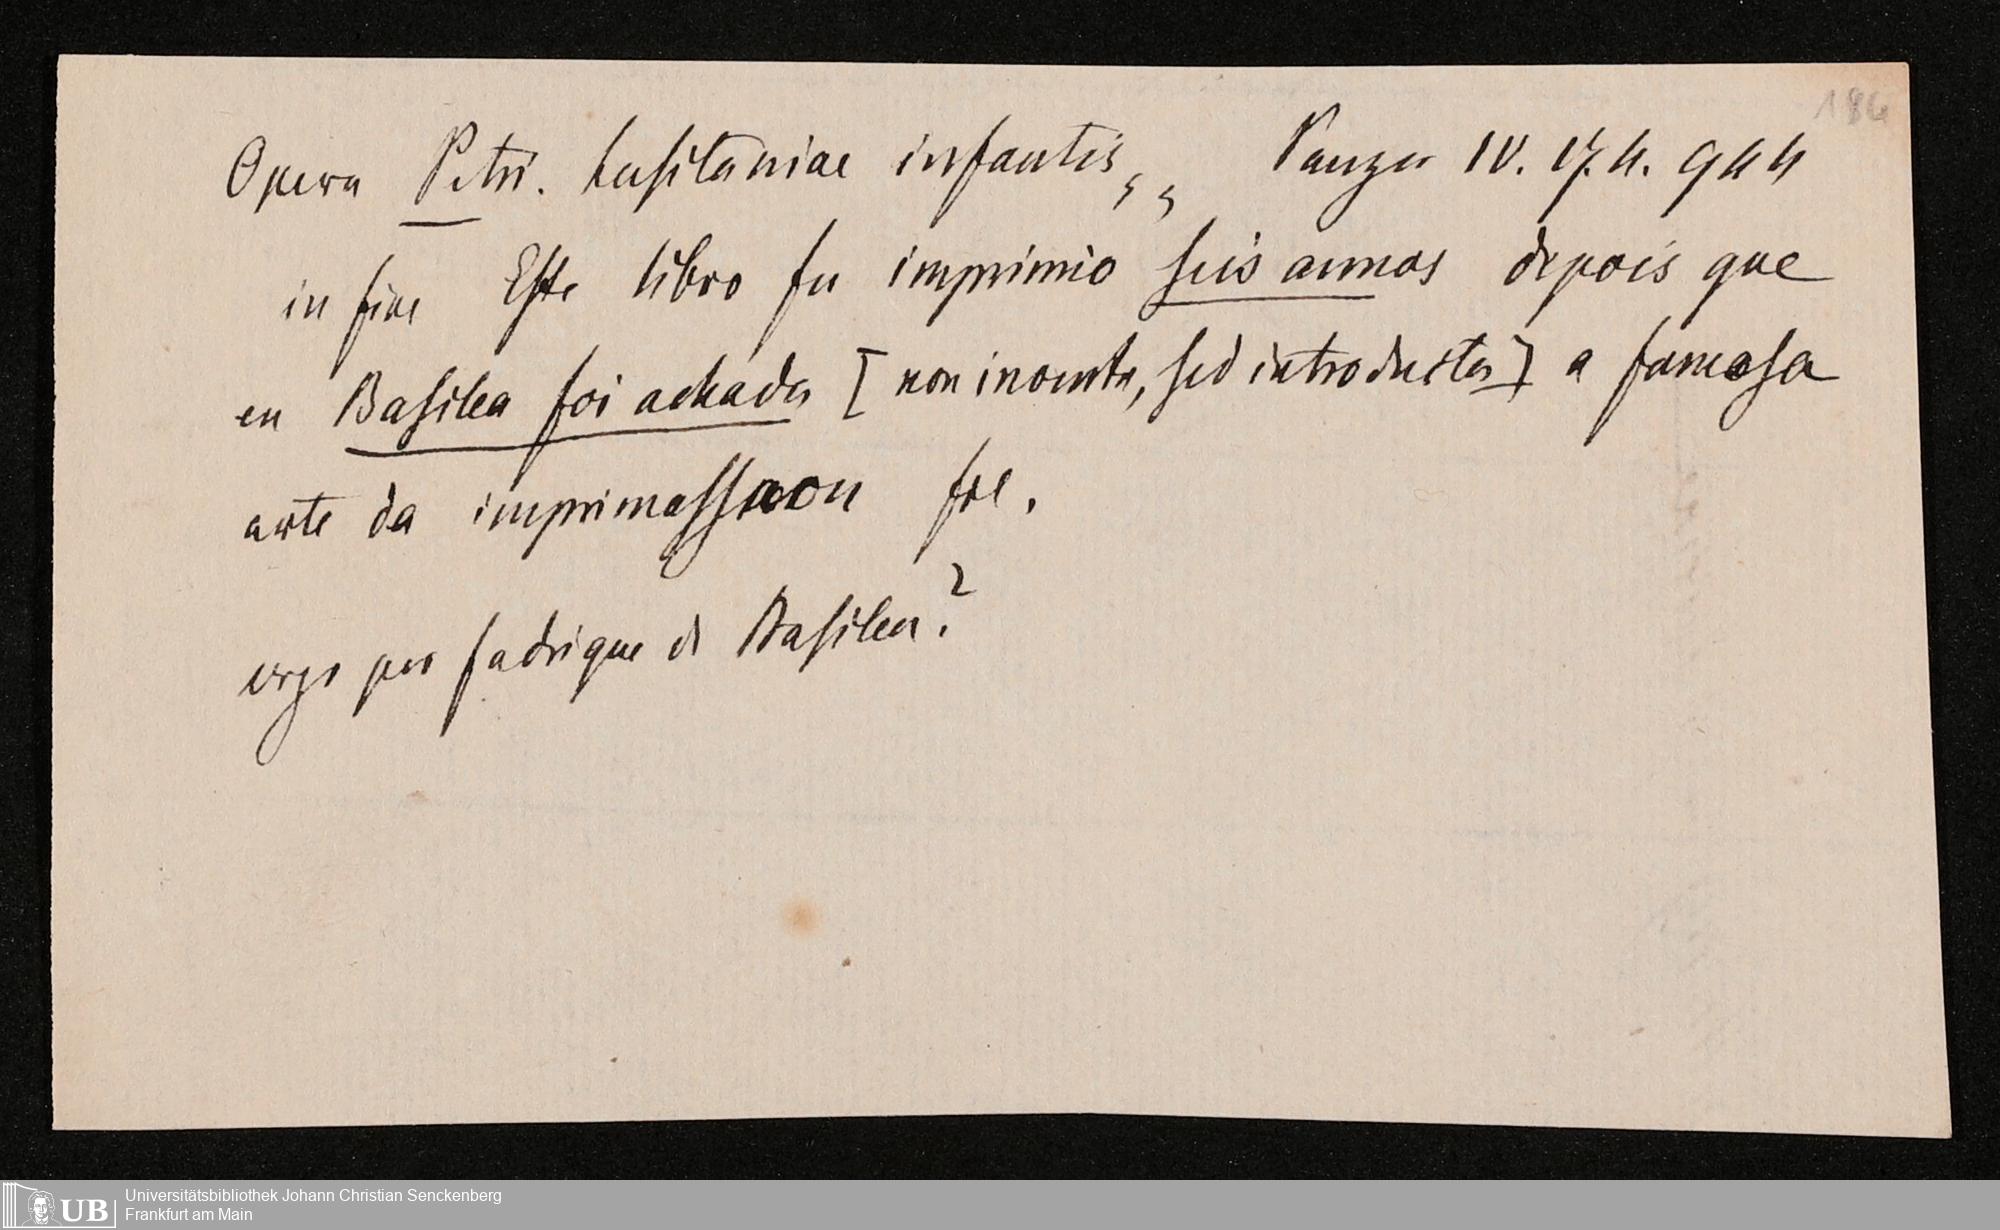 186
Opera Petri. Lusitaniae infantis,, Panzer IV. 17. 4. 944
in fine Este libro fu imprimio seis annos depois que
en Basilea foi achada [non inventa, sed introducta] a famosa
arte da imprimassaon fol.
ergo per fadrique d Basilea?
UB
Universitätsbibliothek Johann Christian Senckenberg
Frankfurt am Main